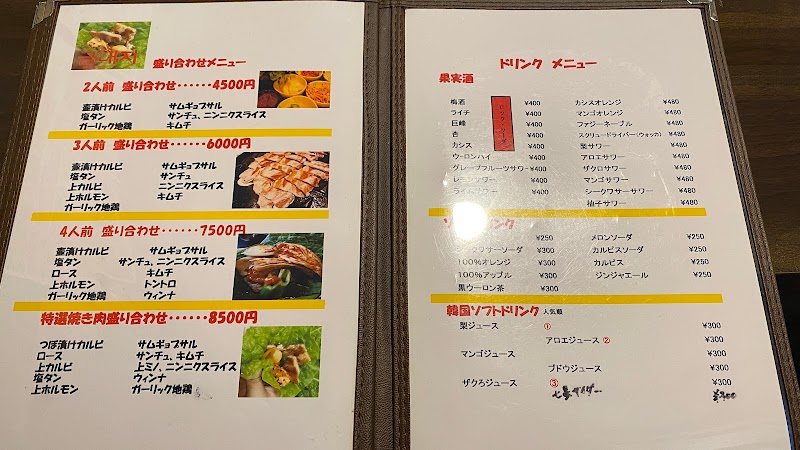 盛り合わせメニュー
2人前 盛り合わせ・・・・・・4500円
壷漬けカルビ サムギョプサル
塩タン サンチュ、ニンニクスライス
ガーリック地鶏 キムチ
3人前 盛り合わせ・・・・・・6000円
壷漬けカルビ サムギョプサル
塩タン サンチュ
上カルビ ニンニクスライス
上ホルモン キムチ
ガーリック地鶏
4人前 盛り合わせ・・・・・・7500円
壷漬けカルビ サムギョプサル
塩タン サンチュ、ニンニクスライス
ロース キムチ
上ホルモン トントロ
ガーリック地鶏 ウィンナ
特選焼き肉盛り合わせ・・・・・・8500円
つぼ漬けカルビ サムギョプサル
ロース サンチュ、キムチ
上カルビ 上ミノ、ニンニクスライス
塩タン ウィンナ
上ホルモン ガーリック地鶏
ドリンク メニュー
果実酒
梅酒 ¥400 カシスオレンジ ¥480
ライチ ¥400 マンゴオレンジ ¥480
巨峰 ¥400 ファジーネーブル ¥480
杏 ¥400 スクリュードライバー(ウォッカ) ¥480
カシス ¥400 梨サワー ¥480
ウーロンハイ ¥400 アロエサワー ¥480
グレープフルーツサワー ¥400 ザクロサワー ¥480
レモンサワー ¥400 マンゴサワー ¥480
ライムサワー ¥400 シークワサーサワー ¥480
柚子サワー ¥480
ドリンク
¥250 メロンソーダ ¥250
シークワサーソーダ ¥300 カルピスソーダ ¥250
100%オレンジ ¥300 カルピス ¥250
100%アップル ¥300 ジンジャエール ¥250
黒ウーロン茶 ¥300
韓国ソフトドリンク 人気順
梨ジュース ① ¥300
アロエジュース ② ¥300
マンゴジュース ¥300
ブドウジュース ¥300
ザクろジュース ③ ¥300
¥300